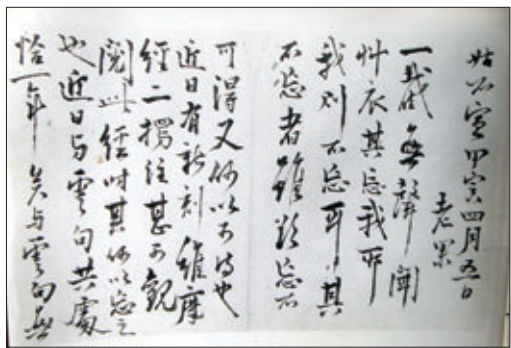 姑不宣 甲寅四月五日
老果
一歲無聲聞
艸衣其忘我耶
我則不忘耳其
不忘者雖欲忘不
可得又何以不得也
近日有新刻維摩
經二楞注甚可觀
閱此經時其何以忘之
也近日与雲句共處
恰一年矣与雲句無